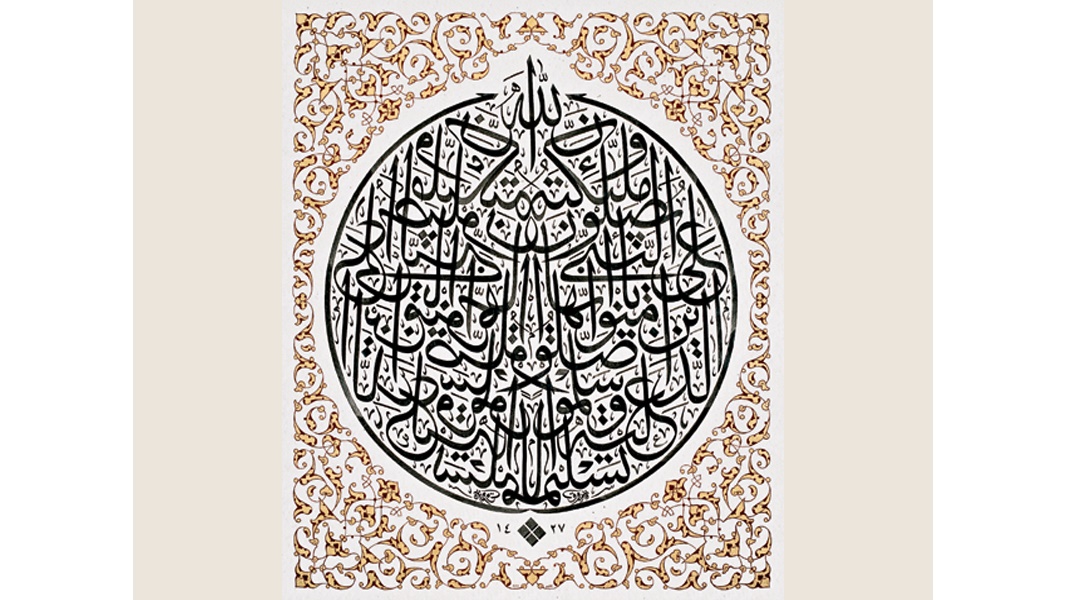 إن الله وملئكته يصلون على النبي يأيها الذين آمنوا صلوا عليه وسلموا تسليما
١٤ ٢٧